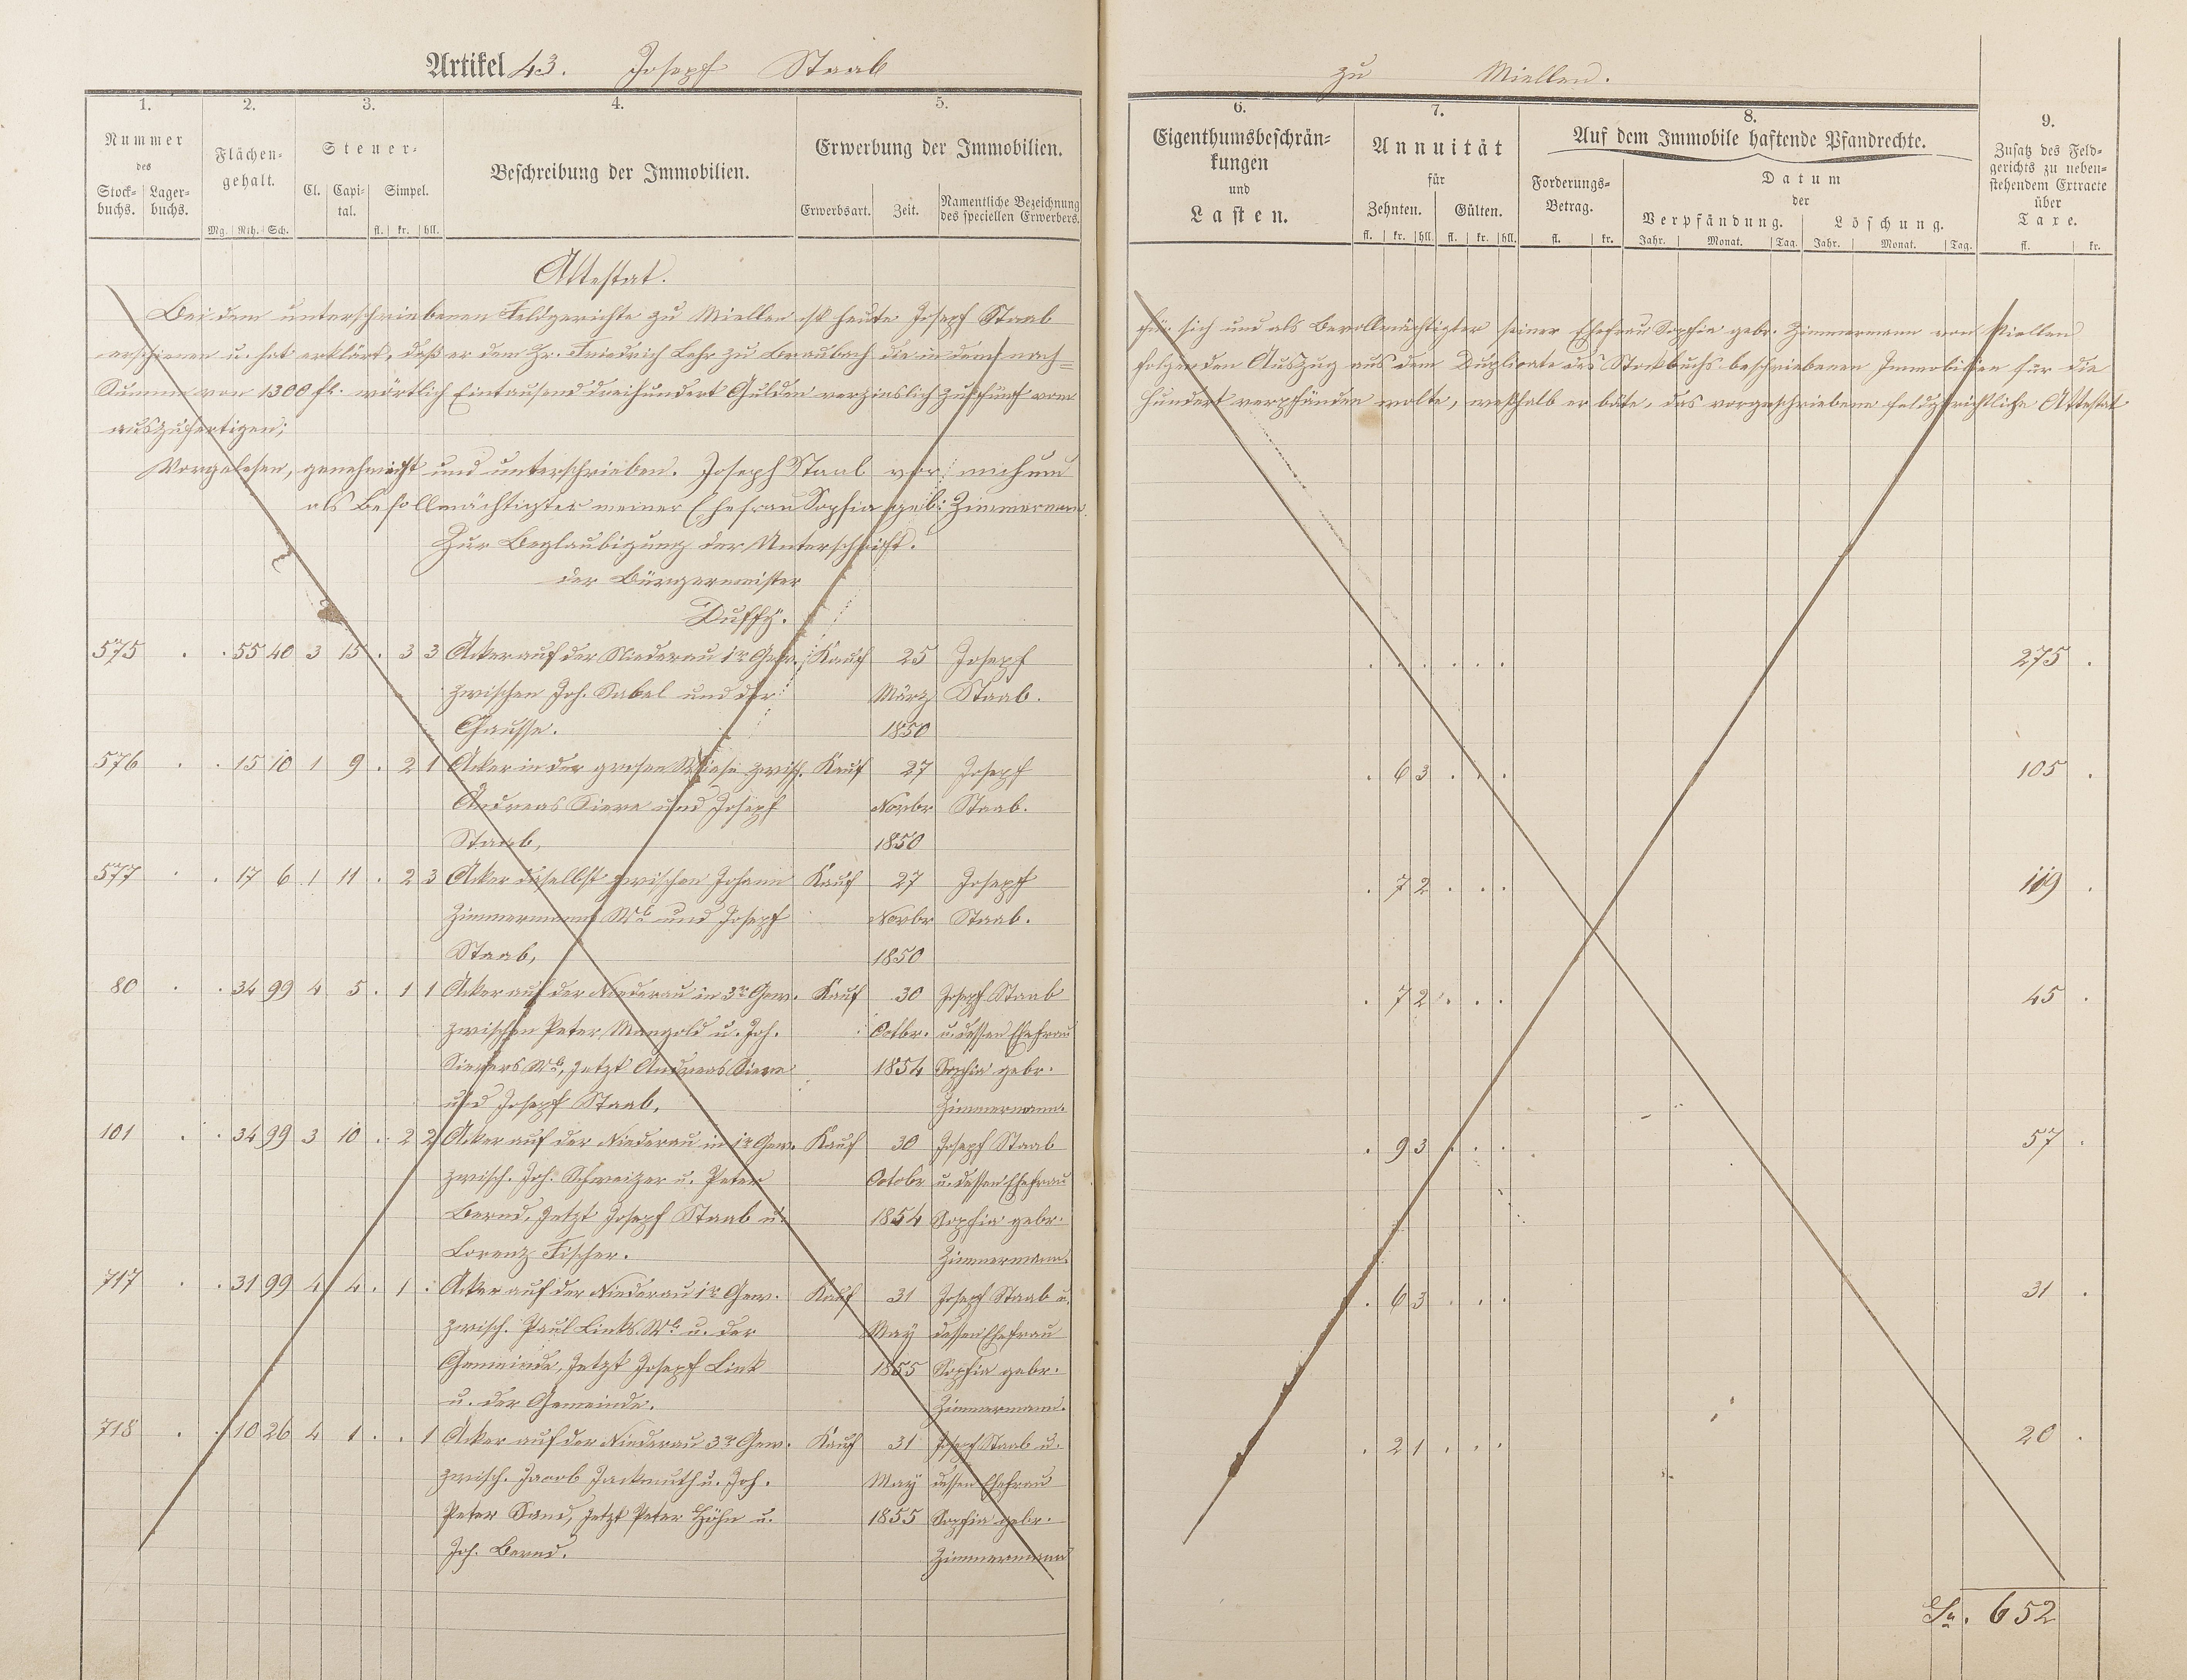 Artikel 43. Joseph Staab zu Miellen.
1. 2. 3. 4. 5. 6. 7. 8. 9.
Nummer des Stockbuchs. Lagerbuchs.
Flächengehalt. Mg. Rth. Sch.
Steuer- Cl. Capital. Simpel. fl. kr. hll.
Beschreibung der Immobilien.
Erwerbung der Immobilien.
Erwerbsart. Zeit. Namentliche Bezeichnung des speciellen Erwerbers.
Eigenthumsbeschränkungen und Lasten.
Annuität für Zehnten. Gülten. fl. kr. hll. fl. kr. hll.
Auf dem Immobile haftende Pfandrechte.
Forderungs-Betrag. fl. kr.
Datum der Verpfändung. Löschung.
Jahr. Monat. Tag. Jahr. Monat. Tag.
Zusatz des Feldgerichts zu nebenstehendem Extracte über Taxe. fl. kr.
Attestat.
Bei dem unterschriebenen Feldgerichte zu Miellen ist heute Joseph Staab für sich und als Bevollmächtigter seiner Ehefrau Sophia gebr. Zimmermann von Miellen
erschienen u. hat erklärt, daß er dem Hr. Friedrich Lehr zu Braubach die in dem nach= folgenden Auszug aus dem Duplicate des Stockbuchs beschriebenen Immobilien für die
Summe von 1300 fl. wörtlich Eintausend dreihundert Gulden verzinslich zu fünf vom Hundert verpfänden wolte, weßhalb er bäte, das vorgeschriebene feldgerichtliche Attestat
auszufertigen;
Vorgelesen, genehmigt und unterschrieben. Joseph Staab vor mich und
als Befollmächtigter meiner Ehefrau Sophia geb: Zimmermann.
Zur Beglaubigung der Unterschrift.
der Bürgermeister
Duffy.
575 . . 55 40 3 15 . 3 3 Acker auf der Niederau 1r Gew. Kauf 25 Joseph . . . . . . 275 .
zwischen Joh. Sabel und der März Staab.
Chausse. 1850
576 . . 15 10 1 9 . 2 1 Acker in der grosen Wiese zwisch. Kauf 27 Joseph . 6 3 . . . 105 .
Andreas Siere und Joseph Novbr Staab.
Staab, 1850
577 . . 17 6 1 11 . 2 3 Acker daselbst zwischen Johann Kauf 27 Joseph . 7 2 . . . 119 .
Zimmermanns Wb und Joseph Novbr Staab.
Staab, 1850
80 . . 34 99 4 5 . 1 1 Acker auf der Niederau in 3r Gew. Kauf 30 Joseph Staab . 7 2 . . . 45 .
zwischen Peter Mangold u. Joh. Octbr. u. dessen Ehefrau
Wb, Jetzt Andreas Siere 1854 Sophia gebr.
und Joseph Staab. Zimmermann.
101 . . 34 99 3 10 . 2 2 Acker auf der Niederau in 1r Gew. Kauf 30 Joseph Staab . 9 3 . . . 57 .
zwisch. Joh. Schweizer u. Peter Octobr u. dessen Ehefrau
Bernd, Jetzt Joseph Staab u. 1854 Sophia gebr.
Lorenz Fischer. Zimmermann.
717 . . 31 99 4 4 . 1 . Acker auf der Niederau 1r Gew. Kauf 31 Joseph Staab u. . 6 3 . . . 31 .
zwisch. Paul Links Wb u. der May dessen Ehefrau
Gemeinde, Jetzt Joseph Link 1855 Sophia gebr.
u. der Gemeinde. Zimmermann.
718 . . 10 26 4 1 . . 1 Acker auf der Niederau 3r Gew. Kauf 31 Joseph Staab u. . 2 1 . . . 20 .
zwisch. Jacob Jackmuth u. Joh. May dessen Ehefrau
Peter Sand, Jetzt Peter Höhn u. 1855 Sophia gebr.
Joh. Bernd. Zimmermann
Sa. 652